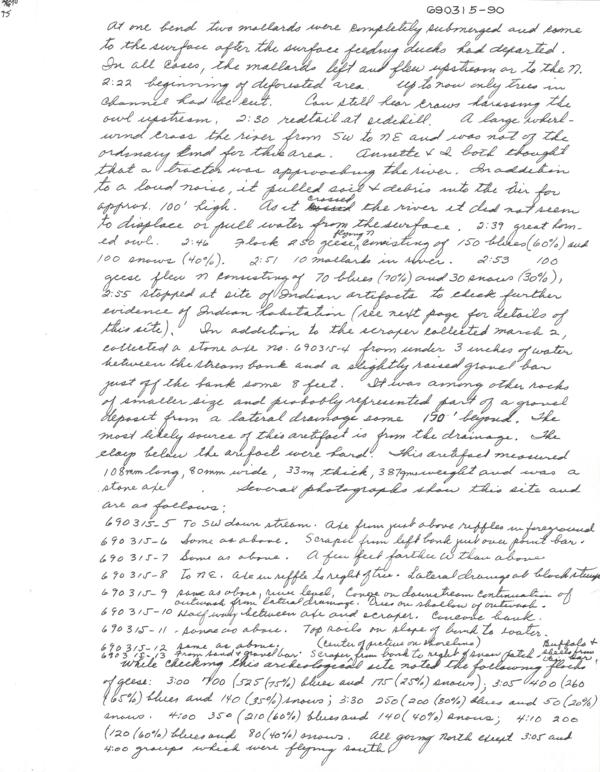 690315-90
75
At one bend two mallards were completely submerged and come
to the surface after the surface feeding ducks had departed.
In all cases, the mallards left and flew upstream or to the N.
2:22 beginning of deforested area. Up to now only trees in
channel had be cut. Can still hear crows harassing the
owl upstream. 2:30 redtail at sidehill. A large whirl-
wind cross the river from SW to NE and was not of the
ordinary kind for this area. Annette & I both thought
that a tractor was approaching the river. In addition
to a loud noise, it pulled soil & debris into the air for
approx. 100' high. As it crossed the river it did not seem
to displace or pull water from the surface. 2:39 great horn-
ed owl. 2:46 Flock 250 geese, flying N consisting of 150 blues (60%) and
100 snows (40%). 2:51 10 mallards in river. 2:53 100
geese flew N consisting of 70 blues (70%) and 30 snows (30%),
2:55 stopped at site of Indian artifacts to check further
evidence of Indian habitation (see next page for details of
this site). In addition to the scraper collected March 2,
collected a stone axe no. 690315-4 from under 3 inches of water
between the stream bank and a slightly raised gravel bar
just off the bank some 8 feet. It was among other rocks
of smaller size and probably represented part of a gravel
deposit from a lateral drainage some 150' beyond. The
most likely source of this artifact is from the drainage. The
clays below the artifact were hard. This artifact measured
108mm long, 80mm wide, 33m thick, 387gms weight and was a
stone axe. Several photographs show this site and
are as follows:
690315-5 To SW down stream. Axe from just above riffles in foreground
690315-6 Same as above. Scraper from left bank just over point bar.
690315-7 Same as above. A few feet farther W than above
690315-8 To NE. Axe in riffle to right of tree. Lateral drainage at block stump
690315-9 same as above, river level, Canoe on downstream continuation of
outwash from lateral drainage. Ones on shallow of outwash.
690315-10 Half way between axe and scraper. Concave bank.
690315-11 - same as above. Top soils on slope of bank to water.
690315-12 same as above; (center of picture on shoreline) Buffalo &
690315-13 From gravel bar. Scraper from bank to right of snow patch.
While checking this archeological site noted the following flocks
of geese: 3:00 700 (525 (75%) blues and 175 (25%) snows); 3:05 400 (260
(65%) blues and 140 (35%) snows; 3:30 250 (200 (80%) blues and 50 (20%)
snows. 4:00 350 (210 (60%) blues and 140 (40%) snows; 4:10 200
(120 (60%) blues and 80 (40%) snows. All going North except 3:05 and
4:00 groups which were flying south